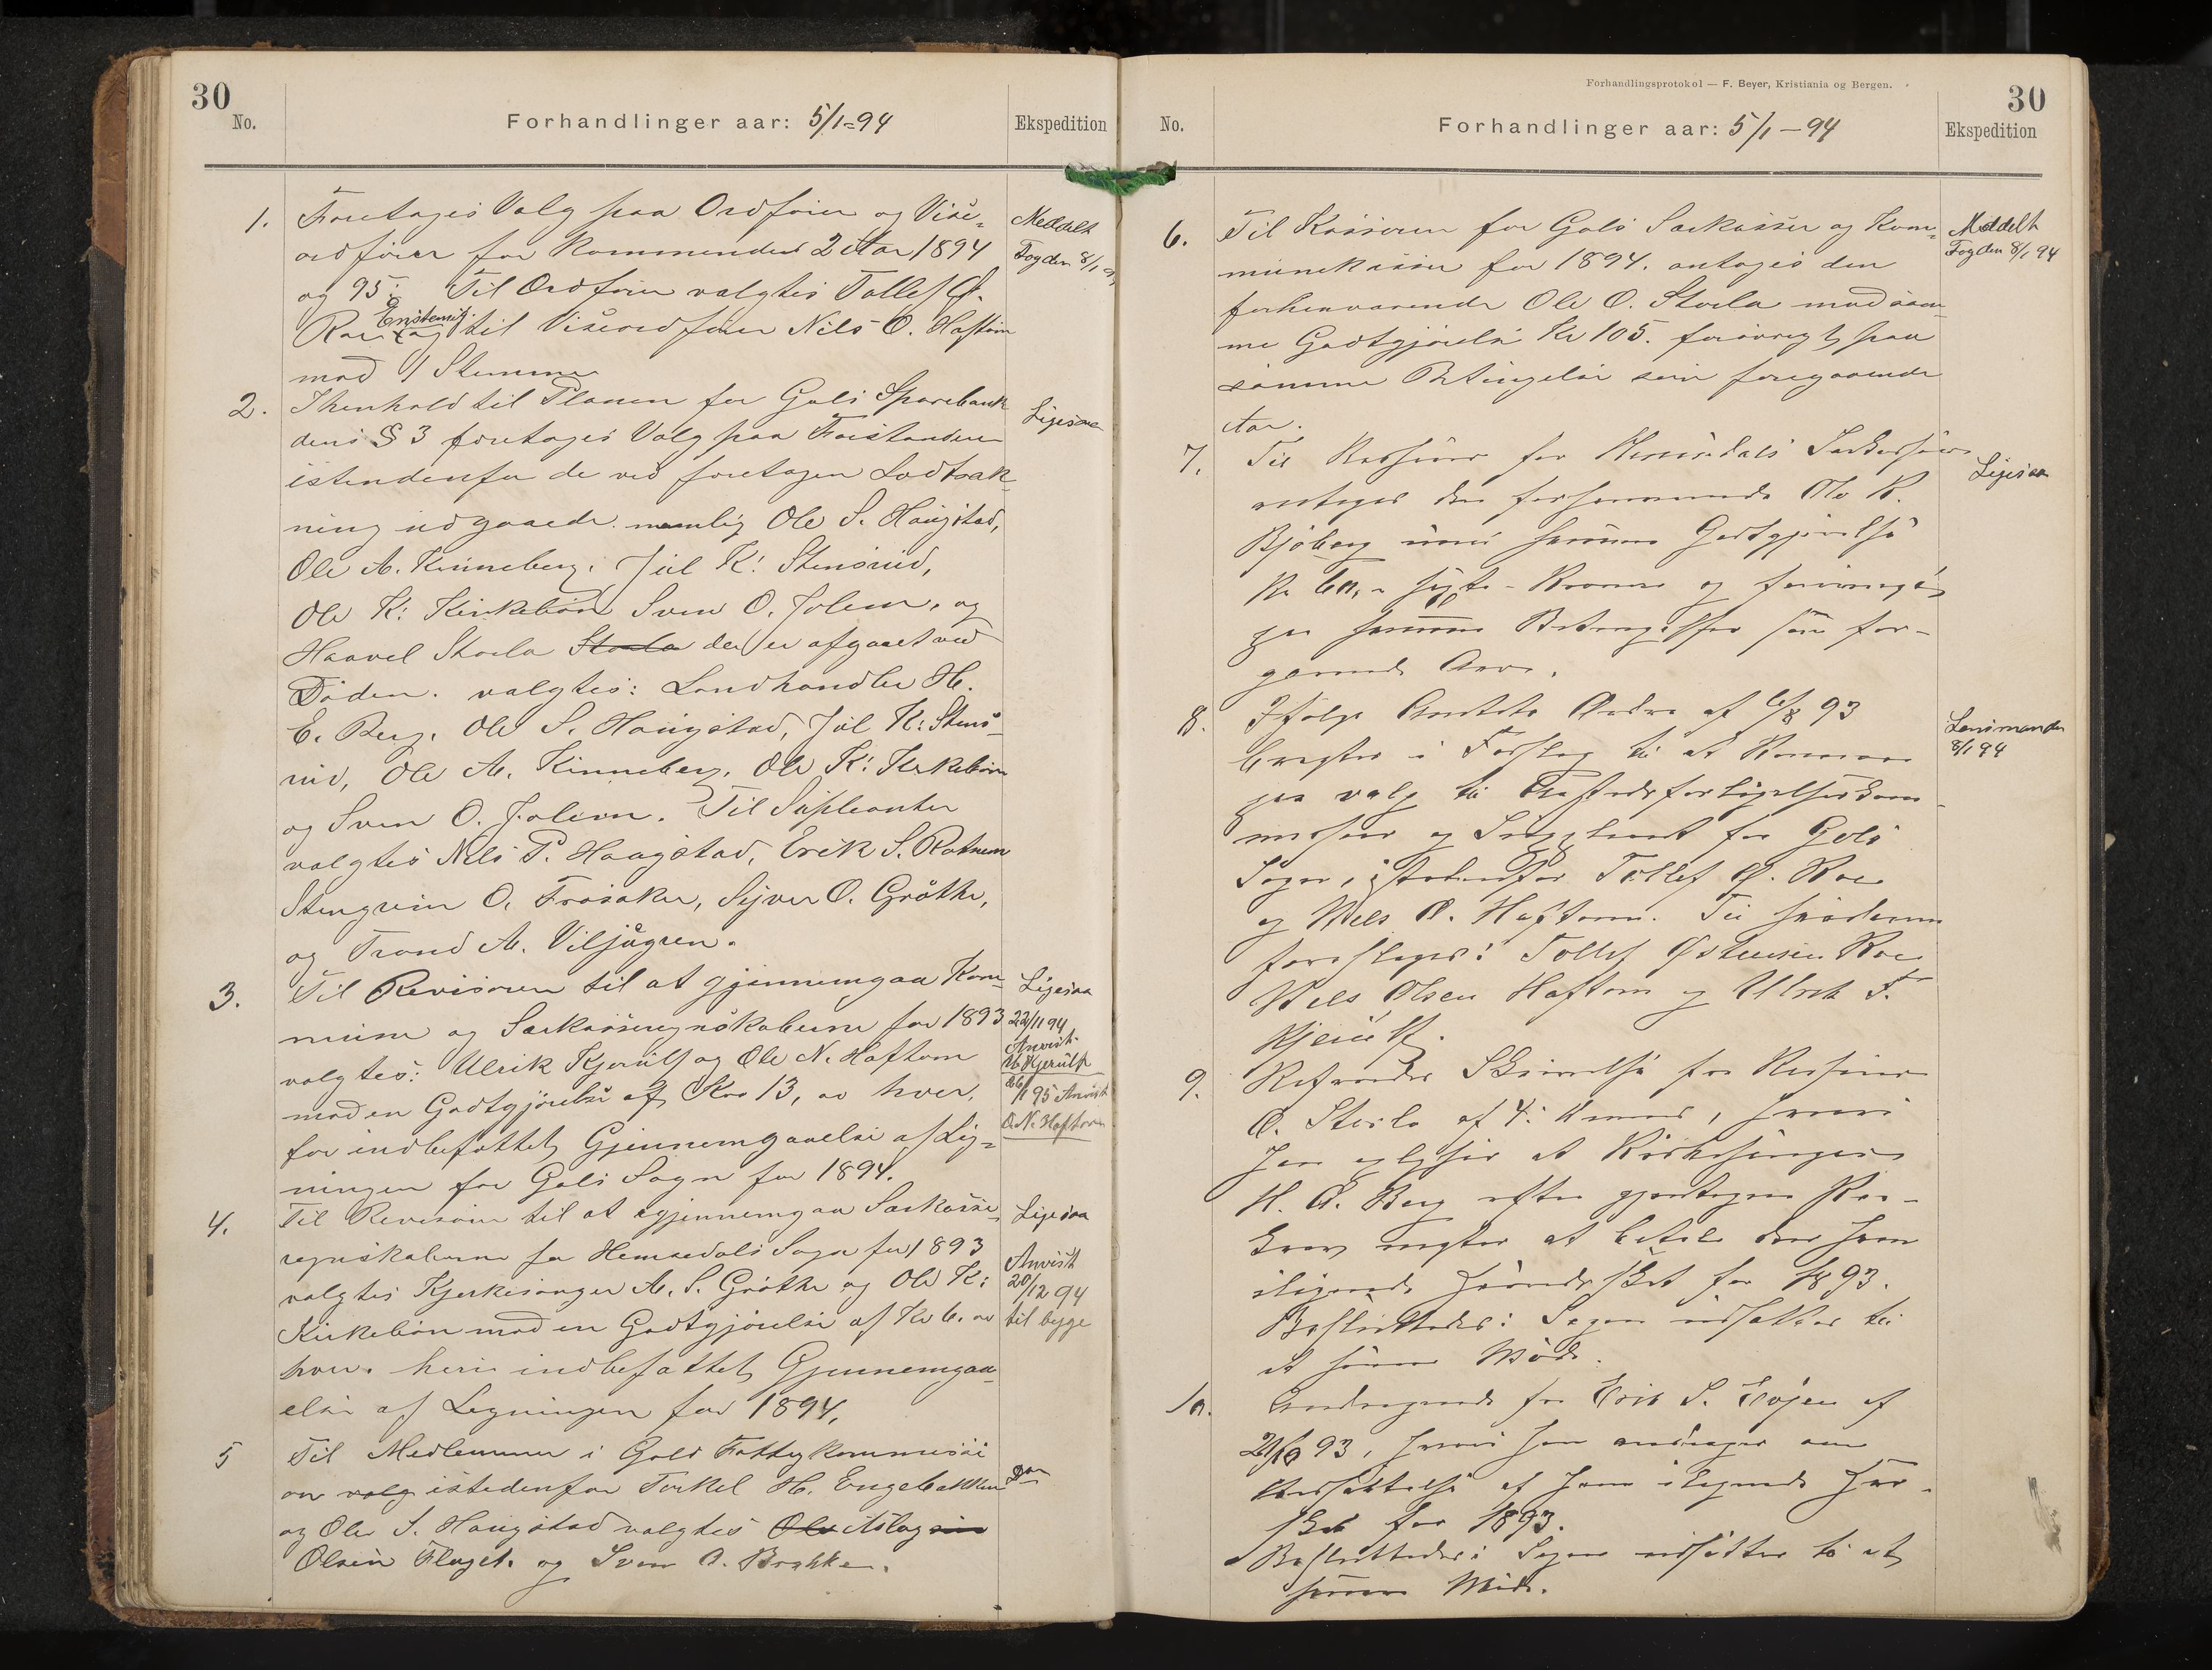 30
No.
Forhandlinger aar: 5/1-94
Ekspedition
1. Foretoges Valg paa Ordfører og Vise-
ordfører for kommende 2 Aar 1894
og 95. Til Ordfører valgtes Tollef Ø.
Roe Enstemig og til Viseordfører Nils O. Haftorn
med 11 Stemmer
Meddelt
Fogden 8/1 94
2. I Henhold til Planen for Gols Sparebank
dens § 3 foretoges Valg paa Forstandere
istendenfor de ved foretagen Lodtræk-
ning udgaaede nemlig Ole S. Haugstad,
Ole A. Kinneberg, Juul K. Stensrud,
Ole K. Kirkebøn Sven O. Jolem, og
Haavel Storla Storla der er afgaaet ved
Døden. valgtes: Landhandler H.
E. Berg, Ole S. Haugstad, Juul K. Stens-
rud, Ole A. Kinneberg, Ole K. Kirkebøn
og Sven O. Jolem. Til Supleanter
valgtes Nils P. Haagstad, Erik S. Rotneim
Stengrim O. Frøsaker, Syver O. Grøthe,
og Trond A. Viljugrein.
Ligesaa
3. Til Revisorer til at gjennemgaa Kom-
mune og Særkasseregnskaberne for 1893
valgtes: Ulrik Kjerulf og Ole N. Haftorn
mod en Godtgjørelse af Kro 13, oo hver,
for indbefattet Gjennemgaaelse af Lig-
ningen for Gols Sogn for 1894.
Ligesaa
22/11 94
Anvist
U. Kjerulf
26/1 95 Anvist
O. N. Haftorn
4. Til Revisorer til at gjennemgaa Særkasse-
regnskaberne for Hemsedals Sogn for 1893
valgtes Kjerkesanger A. S. Grøthe og Ole K.
Kirkebøn mod en Godtgjørelse af Kr 6. oo
hver. heri indbefattet Gjennemgaa-
else af Legningen for 1894.
Ligesaa
Anvist
20/12 94
til begge
5 Til Medlemmer i Gols Fattigkommissi
on valg istedenfor Torkel H. Engebakken
og Ole S. Haugstad valgtes Ole Aslag
Olsen Flaget. og Sven O. Brakke.
Forhandlingsprotokol — F. Beyer, Kristiania og Bergen.
30
No.
Forhandlinger aar: 5/1-94
Ekspedition
6. Til Kasserer for Gols Særkasse og Kom-
munekasse for 1894. antages den
forhenværende Ole O. Storla mod sam-
me Godtgjørelse Kr 105. forøvrigt paa
samme Betingelse som foregaaende
Aar.
Meddelt
Fogden 8/1 94
7. Til Kasserer for Hemsedals Særkasse
antages den forhenværende Ole K.
Bjøberg mod samme Godtgjørelse
Kr 60,- sexti - Kroner og forøvrigt
paa samme Betingelser som for-
gaaende Aar.
Ligesaa
8. Ifølge Amtets Ordre af 6/8 93
bragtes i Forslag til at komme
paa valg til Tilsteds forligelseskom-
misær og Suppleant for Gols
Sogn, istedenfor Tollef Ø. Roe
og Niels O. Haftorn. Til saadanne
foreslaaes: Tollef Østensen Roe
Niels Olsen Haftorn og Ulrik F.
Kjerulf.
Lensmanden
8/1 94
9. Refereredes Skrivelse fra Kasserer
O. Storla af 4. , hvori
han oplyser at Kirkesanger
H. E. Berg efter gjentagne Paa-
krav nægter at betale den ham
ilignede Hundeskat for 1893.
Besluttedes: Sagen udsættes til
et senere Møde.
10. Andragende fra Erik S. Eøjen af
29/10 93, hvori han andrager om
Nedsættelse af ham ilignede Her-
skat for 1893.
Besluttedes: Sagen udsættes til et
senere Møde.